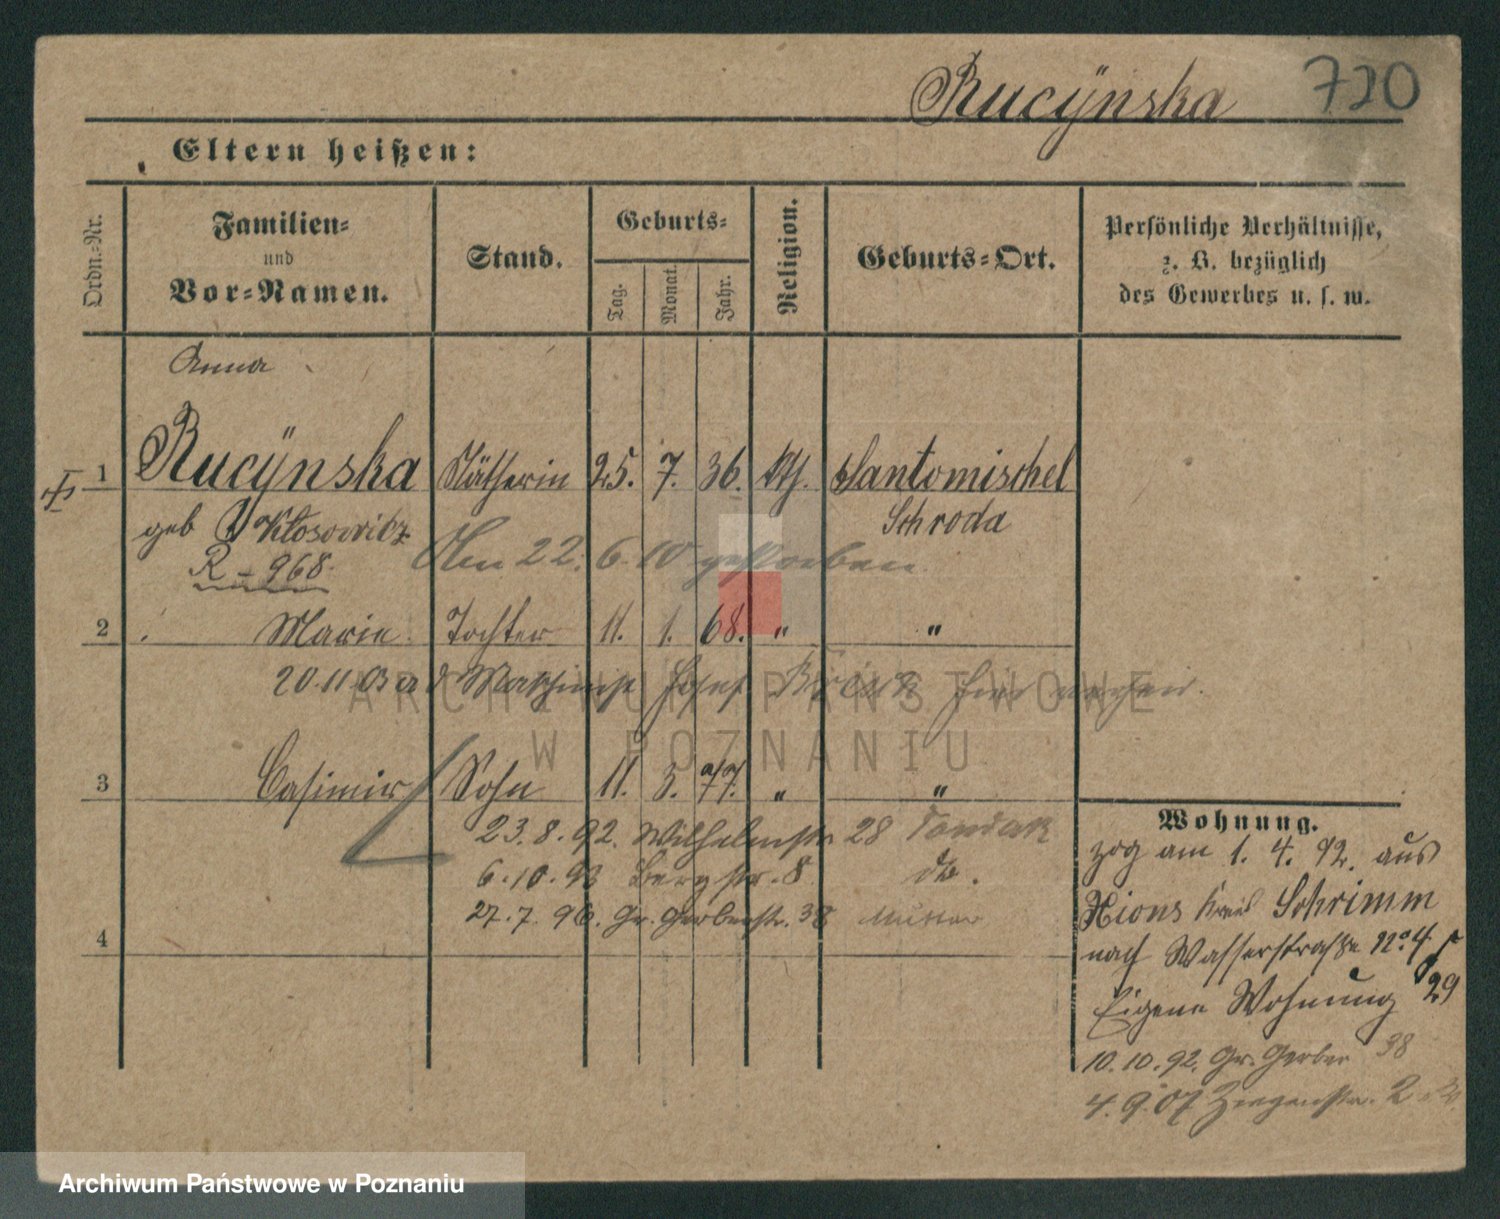 Rucÿnska 720
Eltern heißen:
Ordn.-Nr.
Familien-
und
Vor-Namen.
Stand.
Geburts-
Tag.
Monat.
Jahr.
Religion.
Geburts-Ort.
Persönliche Verhältnisse,
z. B. bezüglich
des Gewerbes u. s. w.
Anna
1 Rucÿnska Nätherin 25. 7. 36. kth. Santomischel
geb Klosowitz Schroda
R - 968. Am 22. 6. 10 gestorben
2 Marie Tochter 11. 1. 68. " "
20.11.03 a d Josef
3 Casimir Sohn 11. 3. 77. " "
23.8.92. Wilhelmstr 28
6.10.93 Bergstr. 8 do.
27.7.96. Gr. Gerberstr. 38 Mutter
4
Wohnung.
zog am 1. 4. 92. aus
Xions Kreis Schrimm
nach Wasserstraße No. 4
Eigene Wohnung 29
10.10.92. Gr. Gerber 38
4.9.07 Ziegenstr. 2
ARCHIWUM PAŃSTWOWE
W POZNANIU
Archiwum Państwowe w Poznaniu